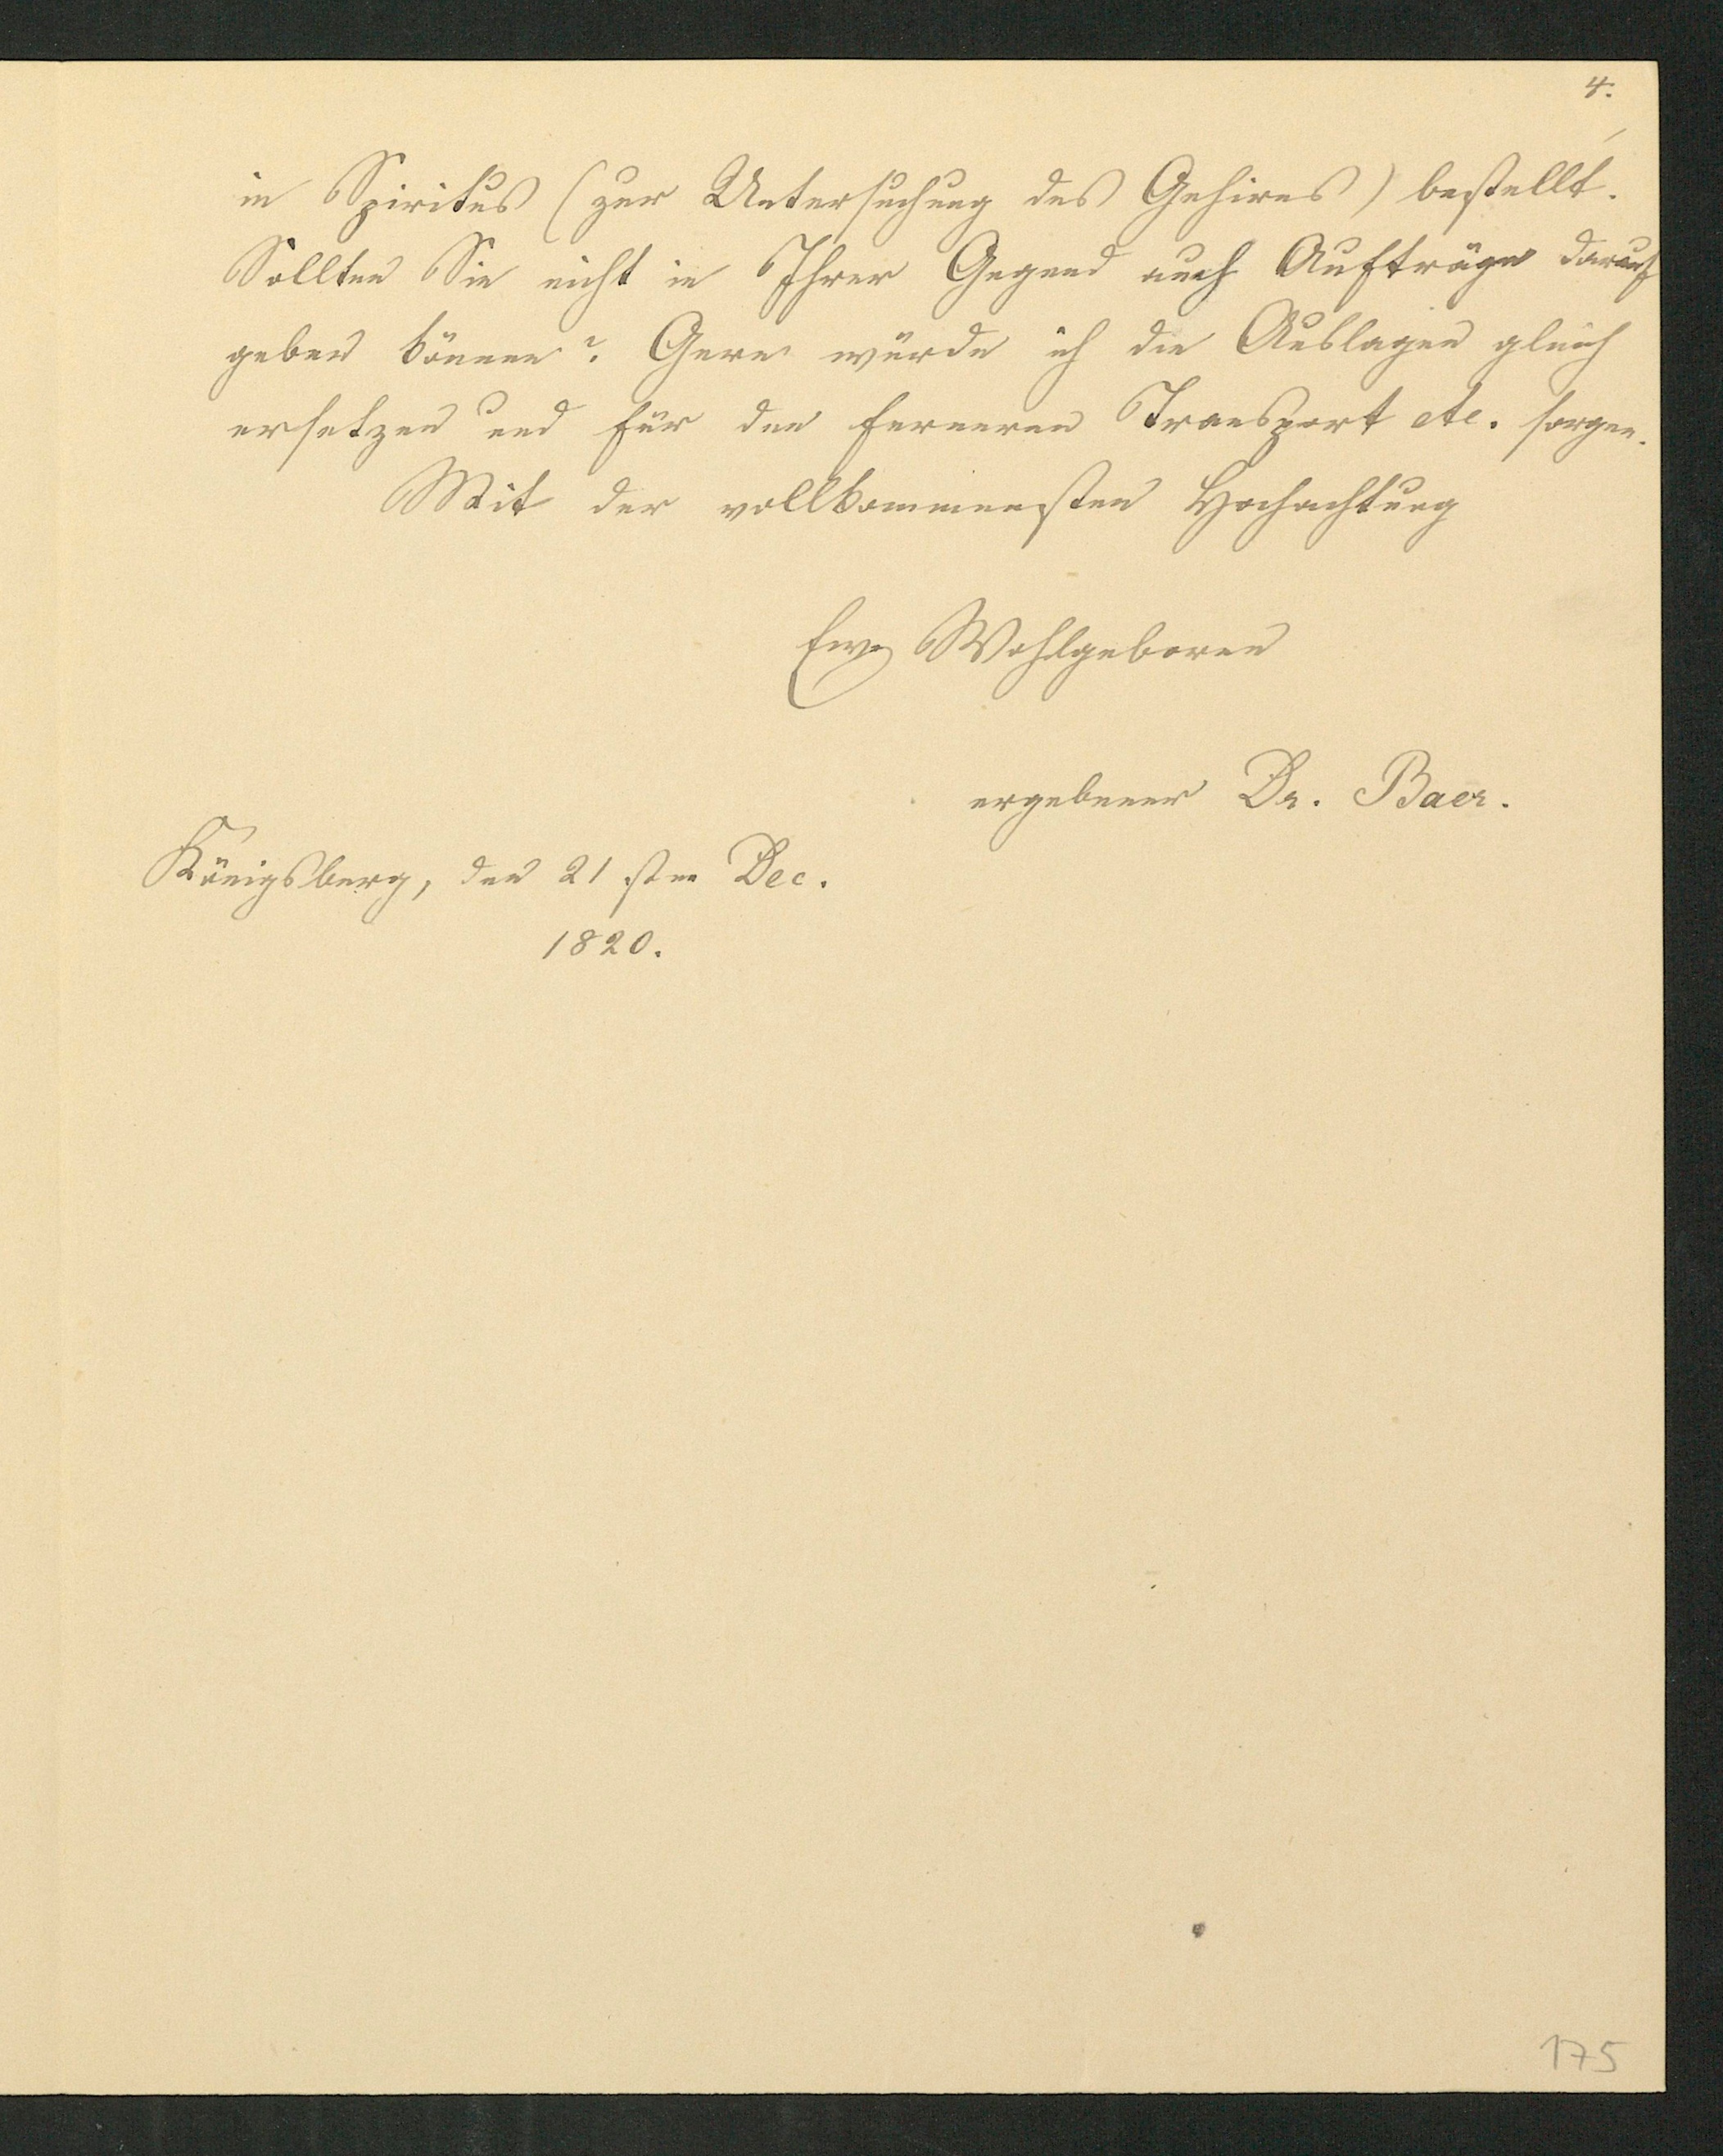 4.
in Spiritus (zur Untersuchung des Gehirns) bestellt.
Sollten Sie nicht in Ihrer Gegend auch Aufträge darauf
geben können? Gern würde ich die Auslagen gleich
ersetzen und für den ferneren Transport etc. sorgen.
Mit der vollkommensten Hochachtung
Ew. Wohlgeboren
ergebener Dr. Baer.
Königsberg, den 21 sten Dec.
1820.
175